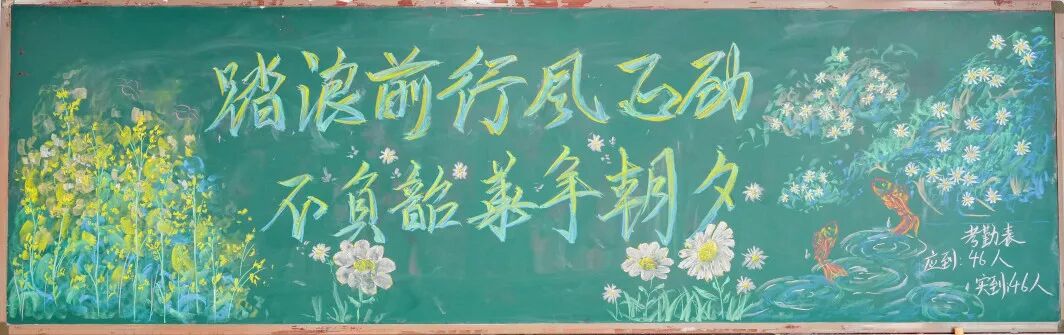 踏浪前行风正劲
不负韶华争朝夕
考勤表
应到:46人
实到:46人